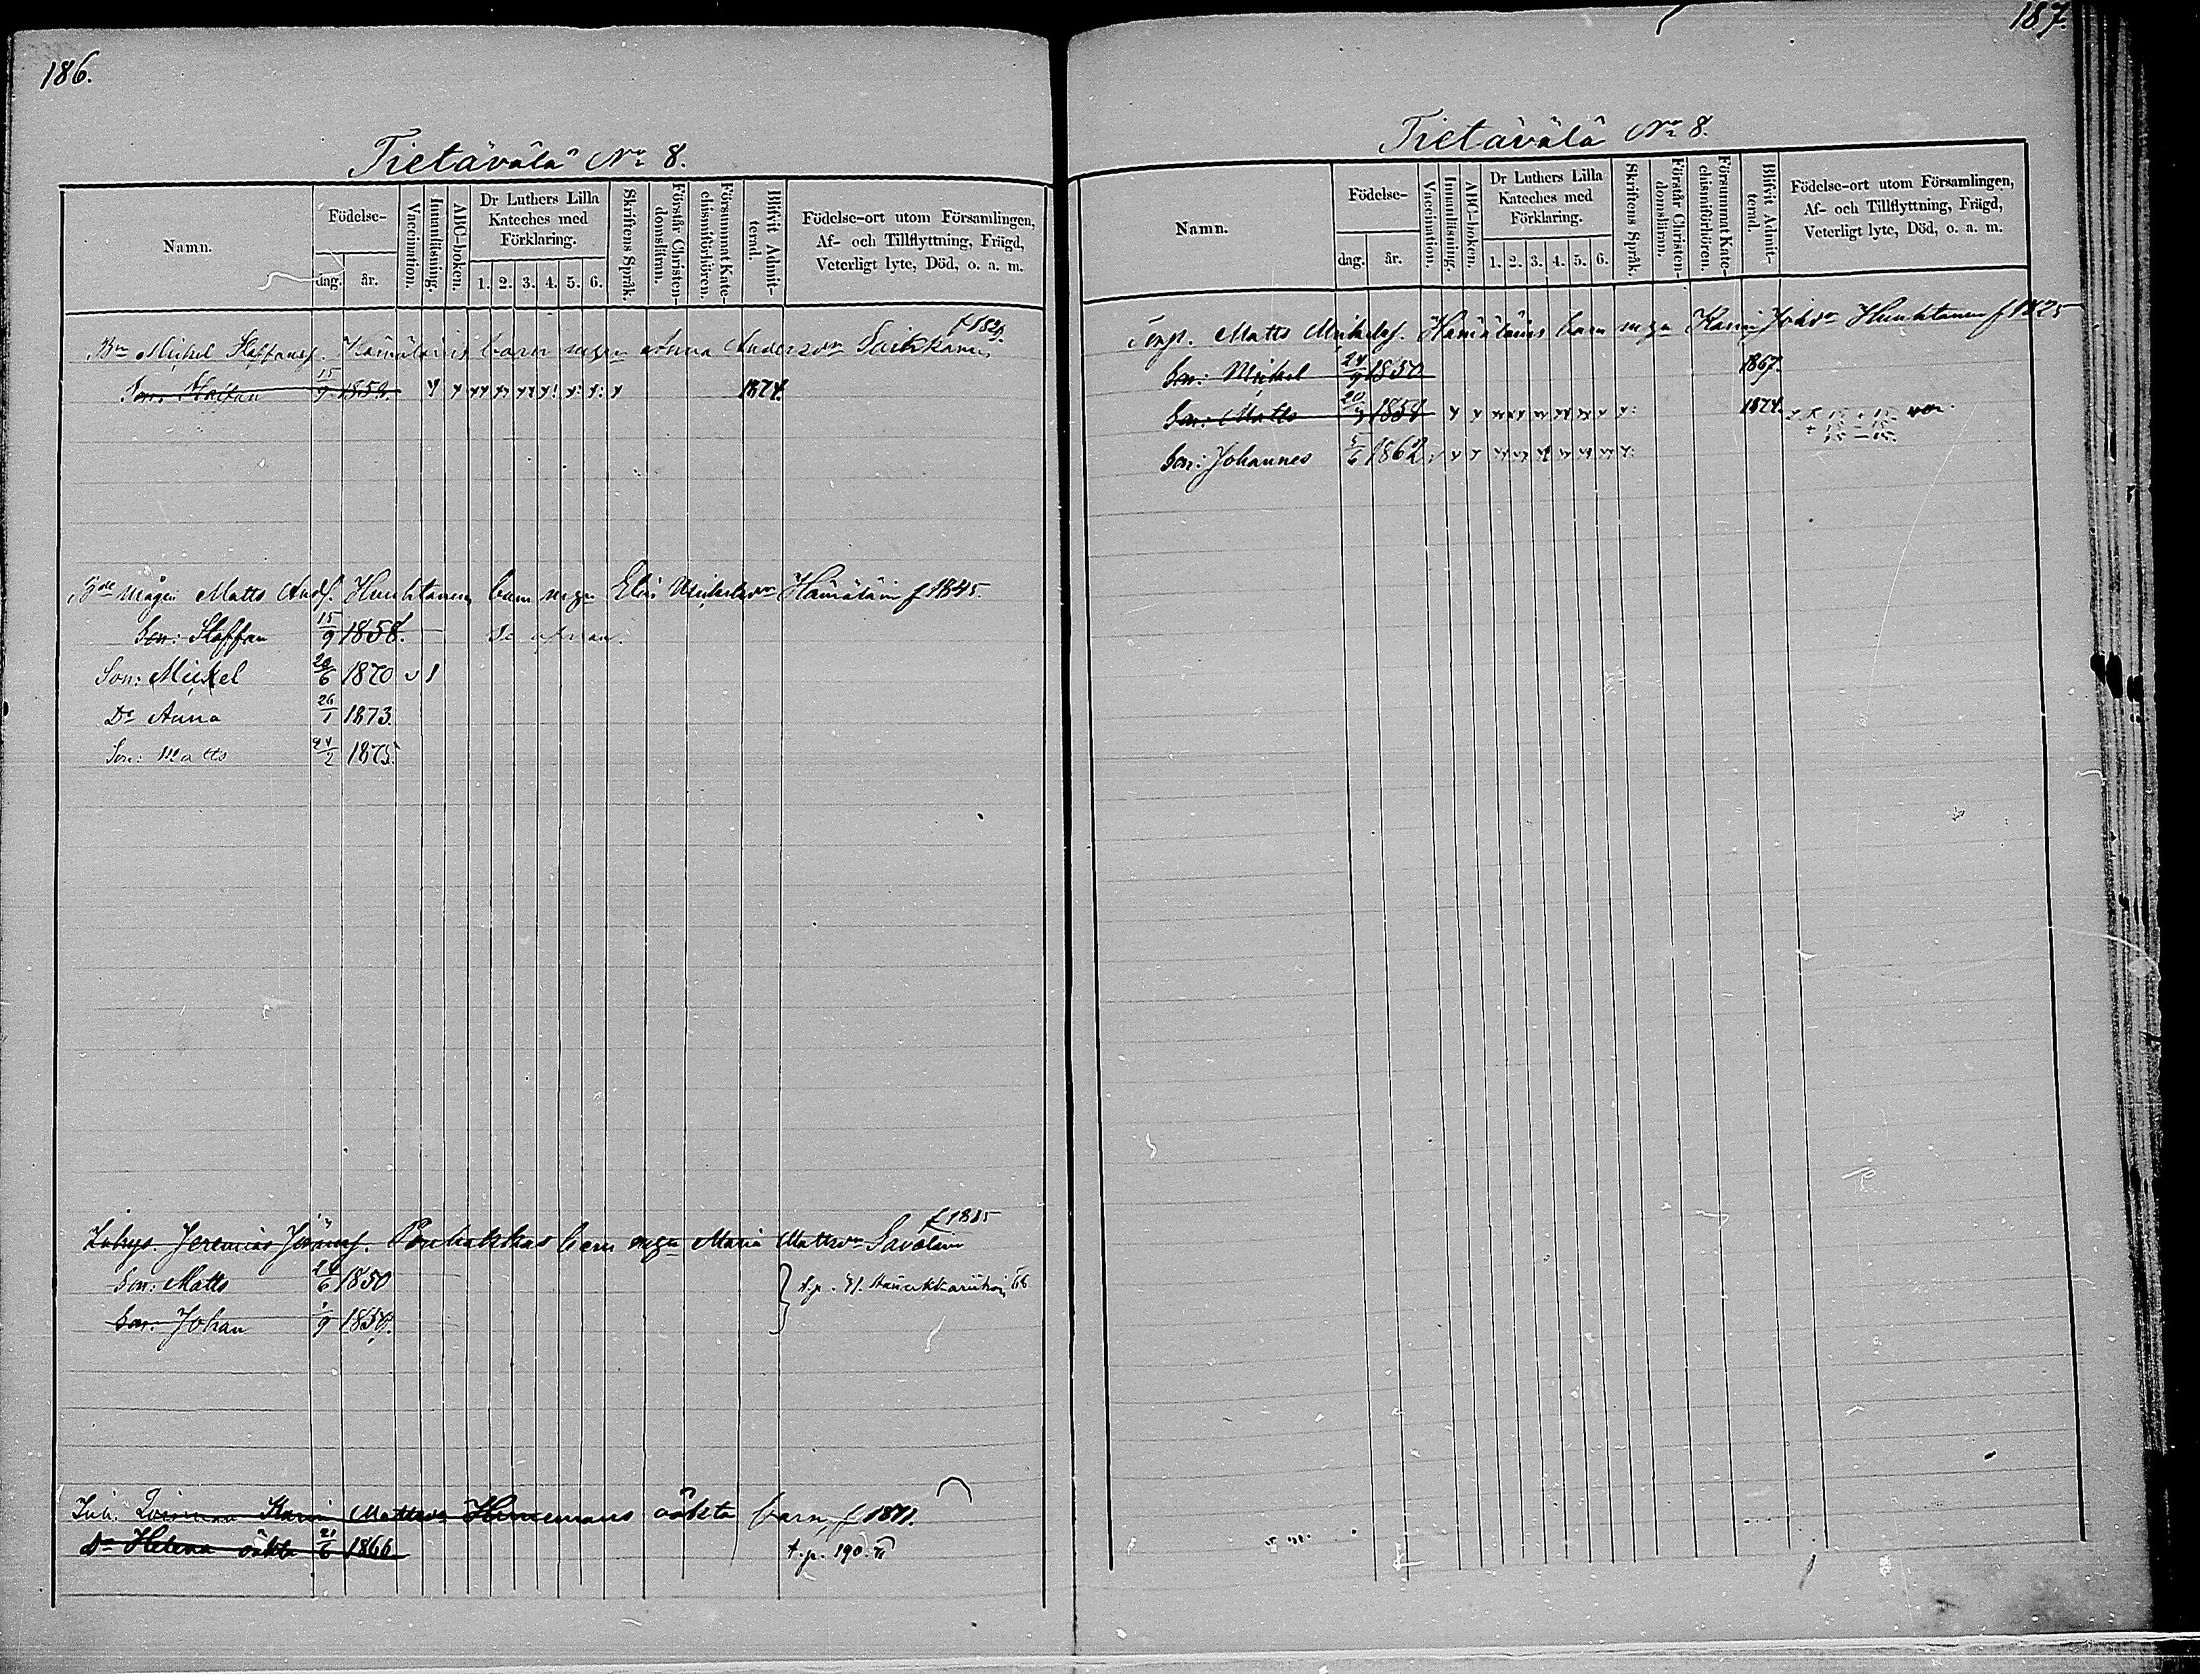 186.
Tietävälä No 8.
Namn.
Födelse-
dag. år.
Vaccination.
Innanläsning.
ABC-boken.
Dr Luthers Lilla Kateches med Förklaring.
1. 2. 3. 4. 5. 6.
Skriftens Språk.
Förstår Christendomsläran.
Försummat Katechismiförhören.
Blifvit Admitterad.
Födelse-ort utom Församlingen, Af- och Tillflyttning, Frägd, Veterligt lyte, Död, o. a. m.
f 1829.
Bn Mickel Staffansf. Hämäläinens barn m. Anna Andersdr
Son: Staffan 15/9 1859 1874.
Matts Andf. Huuhtanen barn m. Elin Mickelsdr Hämäläin f 1845.
Son: Staffan 15/9 1858.
Son: Mickel 29/6 1870
Dr Anna 26/1 1873.
Son: Matts 24/2 1875.
f 1815
Inhys. Jeremias Pönkäskas barn m. Maria Mattsdr Savolain
Son: Matts 24/6 1850
Son: Johan 1/9 1859.
Inh. Karin Mattsdr oäkta barn, f 1841.
Dr Helena oäkta 21/6 1866 t.p. 190.
187.
Tietävälä No 8.
Namn.
Födelse-
dag. år.
Vaccination.
Innanläsning.
ABC-boken.
Dr Luthers Lilla Kateches med Förklaring.
1. 2. 3. 4. 5. 6.
Skriftens Språk.
Förstår Christendomsläran.
Försummat Katechismiförhören.
Blifvit Admitterad.
Födelse-ort utom Församlingen, Af- och Tillflyttning, Frägd, Veterligt lyte, Död, o. a. m.
Matts Mickelsf. Hämäläins barn m. Karin Johdr Huuhtanen f 1825
Son: Mickel 24/9 1850 1867.
Son: Matts 20/9 1858 1874.
Son: Johannes 5/6 1862